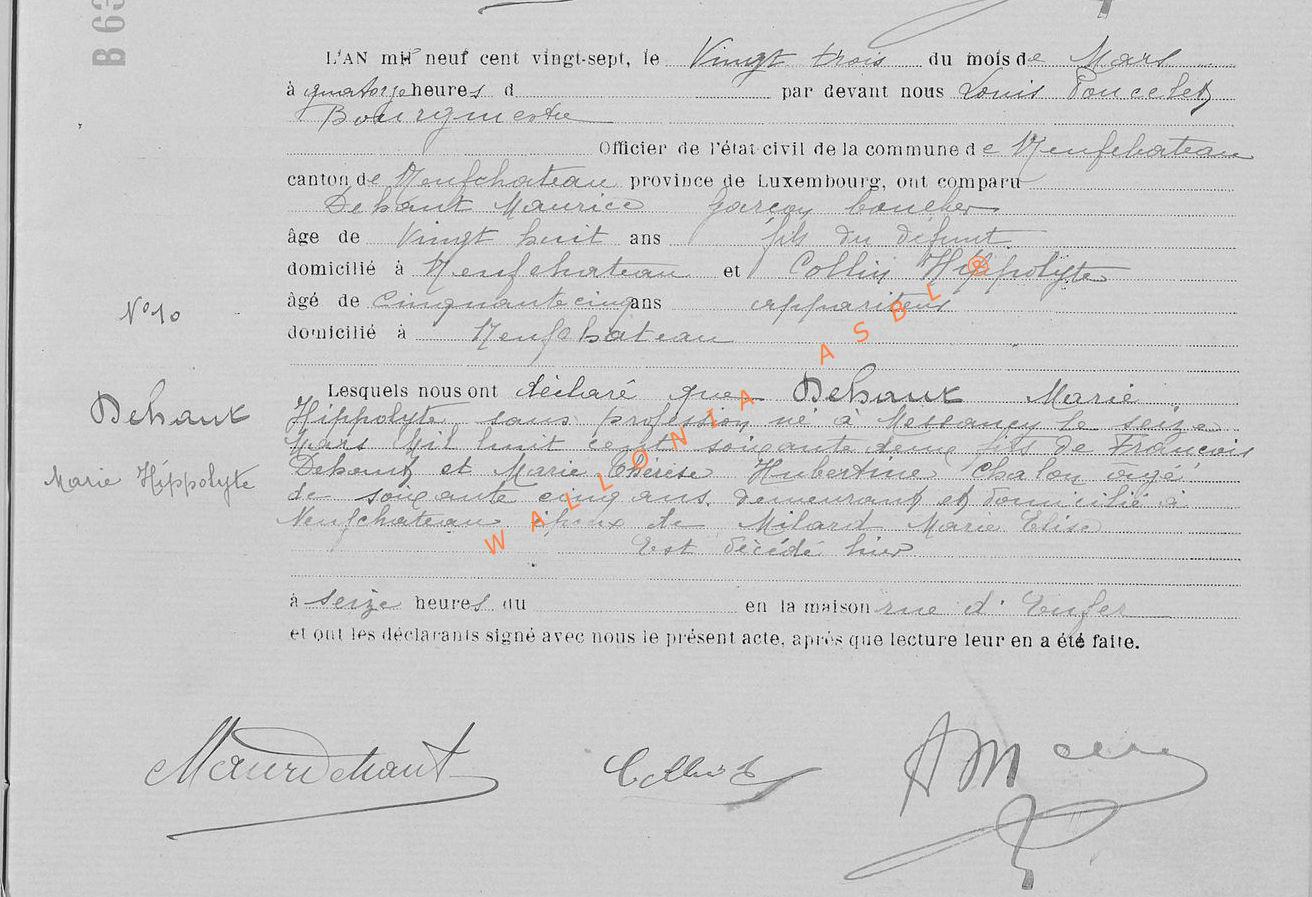 B 63
L'AN mil neuf cent vingt-sept, le Vingt trois du mois de Mars
à quatorze heures d par devant nous Louis Poncelet
Bourgmestre
Officier de l'état civil de la commune de Neufchateau
canton de Neufchateau province de Luxembourg, ont comparu
Dehaut Maurice garçon boucher
âge de Vingt huit ans fils du défunt
domicilié à Neufchateau et Collin Hippolyte
âgé de Cinquante cinq ans appariteur
domicilié à Neufchateau
N° 10
Lesquels nous ont déclaré que Dehaut Marie
Dehaut
Hippolyte sans profession né à Messancy le seize
Mars Mil huit cent soixante deux fils de François
Marie Hippolyte
Dehaut et Marie Thérèse Hubertine Chalon agé
de soixante cinq ans demeurant et domicilié à
Neufchateau époux de Milard Marie Elise
Est décédé hier
à seize heures du en la maison rue d'Enfer
et ont les déclarants signé avec nous le présent acte, après que lecture leur en a été faite.
WALLONIA ASBL ®
Maur Dehaut
Collin H